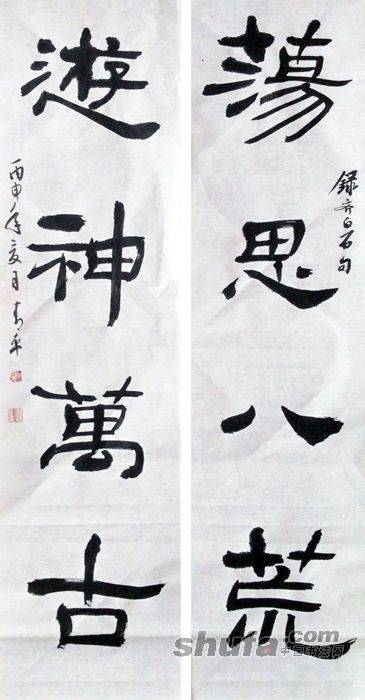 蕩思八荒
録齐白石句
遊神萬古
丙申年夏月
shufa.com
中国书法网